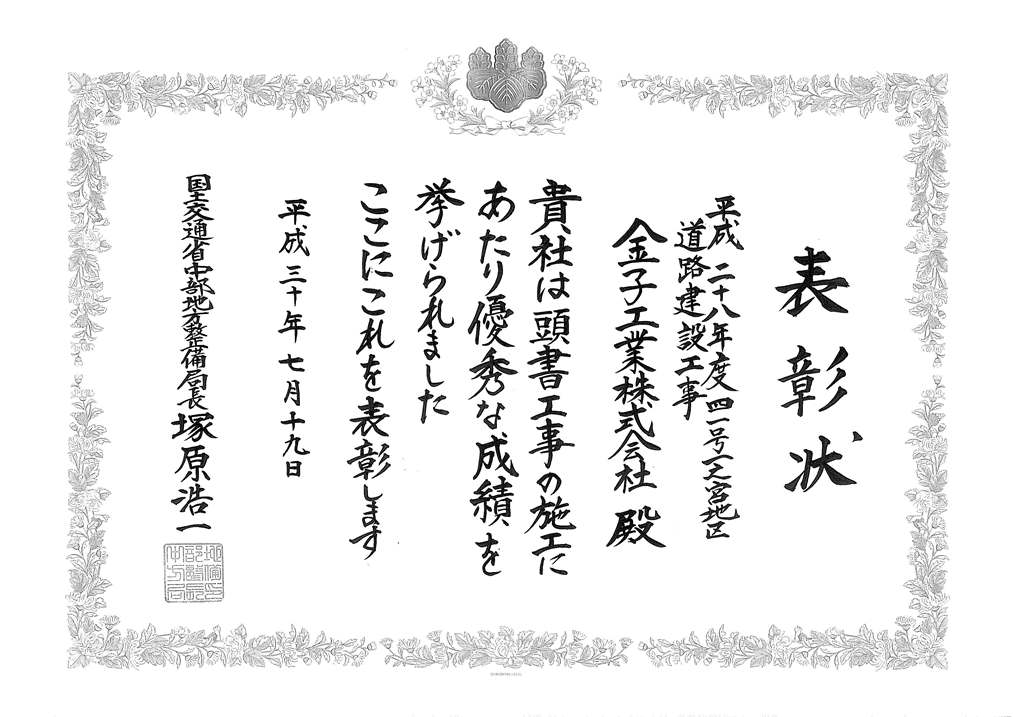 表彰状
平成二十八年度四一号一之宮地区
道路建設工事
金子工業株式会社 殿
貴社は頭書工事の施工に
あたり優秀な成績を
挙げられました
ここにこれを表彰します
平成三十年七月十九日
国土交通省中部地方整備局長 塚原浩一